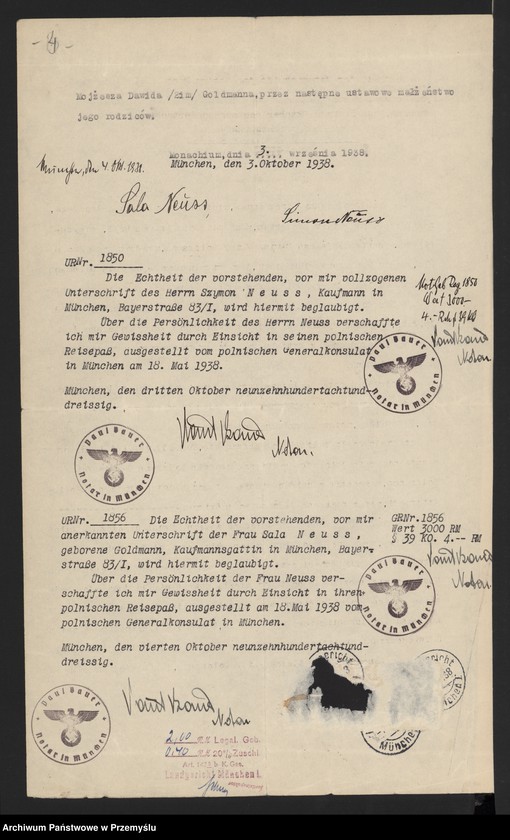 - 4 -
Mojżesza Dawida /im/ Goldmanna, przez następne ustawowe małżeństwo
jego rodziców.
Monachium, dnia 3. września 1938.
München, den 4. Okt. 1938.
München, den 3. Oktober 1938.
Sala Neuss
Simon Neuss
URNr. 1850
Die Echtheit der vorstehenden, vor mir vollzogenen
Unterschrift des Herrn Szymon N e u s s , Kaufmann in
München, Bayerstraße 83/I, wird hiermit beglaubigt.
Über die Persönlichkeit des Herrn Neuss verschaffte
ich mir Gewissheit durch Einsicht in seinen polnischen
Reisepaß, ausgestellt vom polnischen Generalkonsulat
in München am 18. Mai 1938.
1850
Wert 3000
Notar
München, den dritten Oktober neunzehnhundertachtund-
dreissig.
Paul Bauer
Notar in München
Notar.
Paul Bauer
Notar in München
URNr. 1856 Die Echtheit der vorstehenden, vor mir
anerkannten Unterschrift der Frau Sala N e u s s ,
geborene Goldmann, Kaufmannsgattin in München, Bayer-
straße 83/I, wird hiermit beglaubigt.
Über die Persönlichkeit der Frau Neuss ver-
schaffte ich mir Gewissheit durch Einsicht in ihren
polnischen Reisepaß, ausgestellt am 18.Mai 1938 vom
polnischen Generalkonsulat in München.
GRNr.1856
Wert 3000 RM
§ 39 KO. 4.-- RM
Notar
Paul Bauer
Notar in München
München, den vierten Oktober neunzehnhundertachtund-
dreissig.
Paul Bauer
Notar in München
Notar
2,00 RM Legal. Geb.
0.40 RM 20% Zuschl.
Landgericht München I.
München
Archiwum Państwowe w Przemyślu